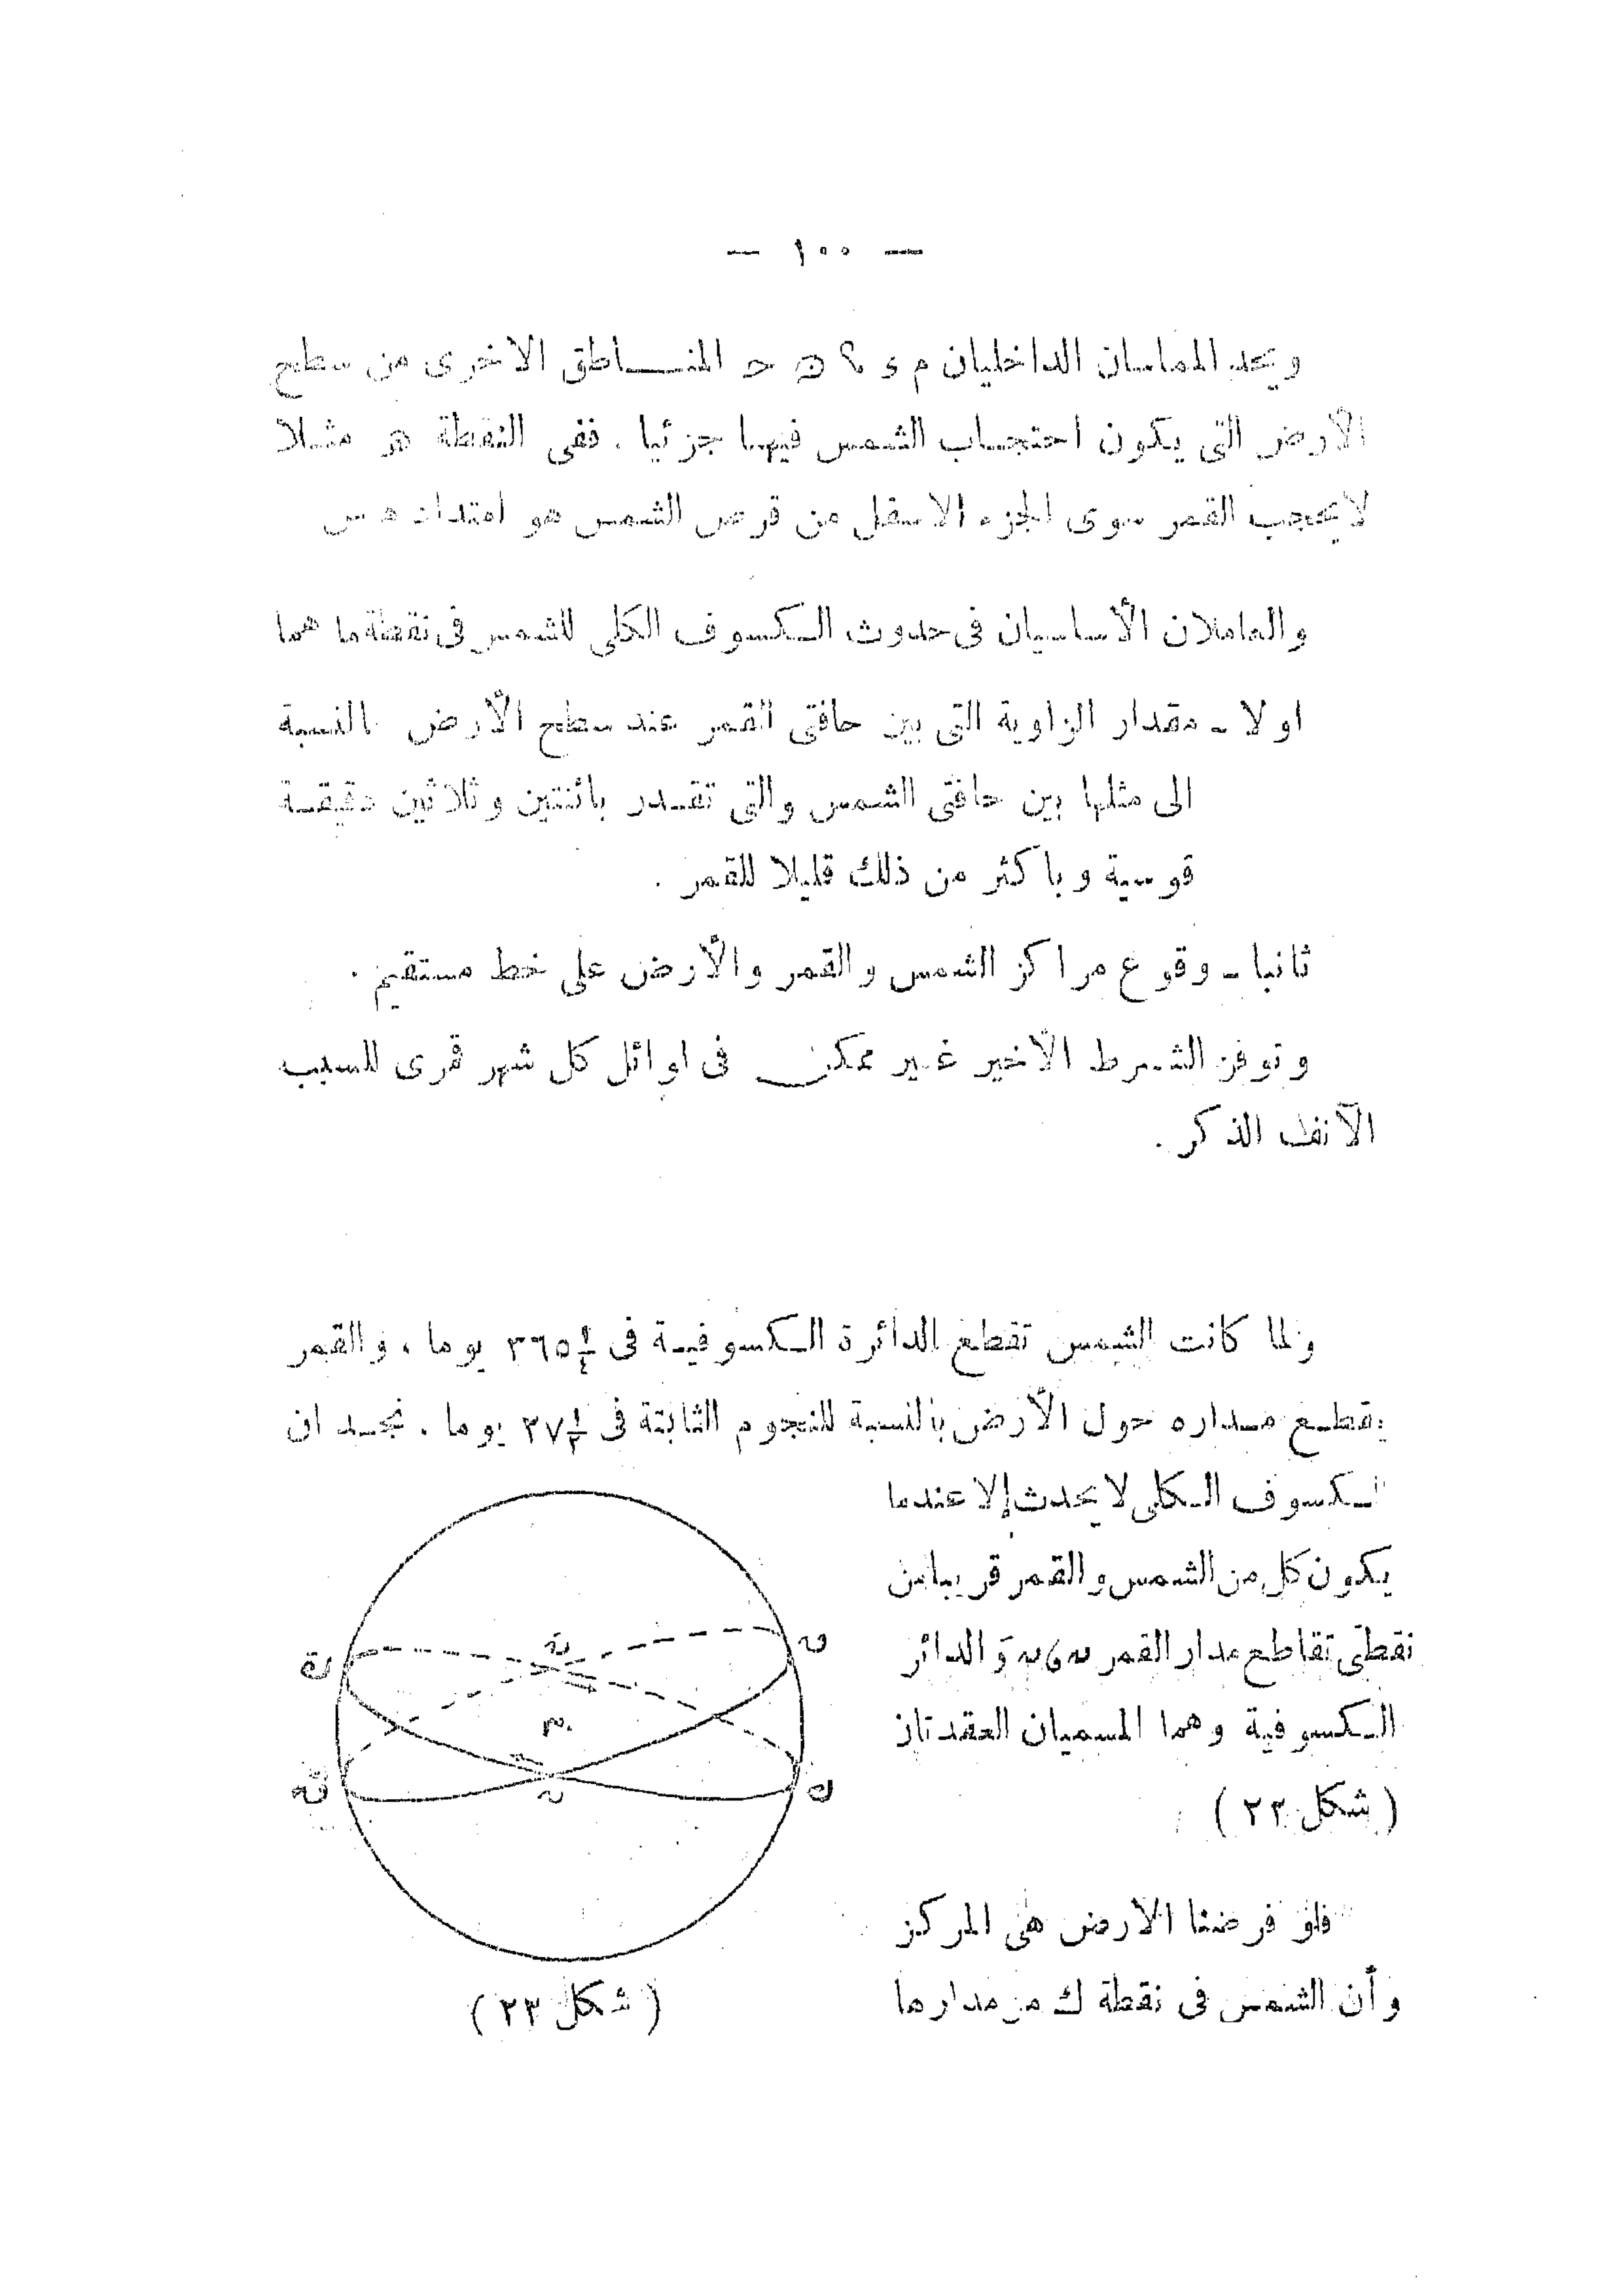 — ١٠٠ —
ويحد المماسان الداخليان م ء ؟ ﻫ ح المنـــاطق الاخرى من سطح
الأرض التى يكون احتجاب الشمس فيها جزئيا . ففى النقطة هر مثلا
لا يحجب القمر سوى الجزء الاسفل من قرص الشمس هو امتداد ه س
والعاملان الأساسيان فى حدوث الكسوف الكلى للشمس فى نقطة ما هما
اولا ـ مقدار الزاوية التى بين حافتى القمر عند سطح الأرض بالنسبة
الى مثلها بين حافتى الشمس والتى تقدر باثنتين وثلاثين دقيقة
قوسية وباكثر من ذلك قليلا للقمر .
ثانيا ـ وقوع مراكز الشمس والقمر والأرض على خط مستقيم .
وتوفر الشرط الأخير غير ممكن فى اوائل كل شهر قمرى للسبب
الآنف الذكر .
ولما كانت الشمس تقطع الدائرة الكسوفية فى ٣٦٥¼ يوما ، والقمر
يقطع مداره حول الأرض بالنسبة للنجوم الثابتة فى ٢٧⅓ يوما . نجد ان
الكسوف الكلى لا يحدث إلا عندما
يكون كل من الشمس والقمر قريبا من
نقطتى تقاطع مدار القمر والدائر
الكسوفية وهما المسميان العقدتان
( شكل ٢٣ )
فلو فرضنا الارض هى المركز
وأن الشمس فى نقطة ك من مدارها
م
ك
( شكل ٢٣ )